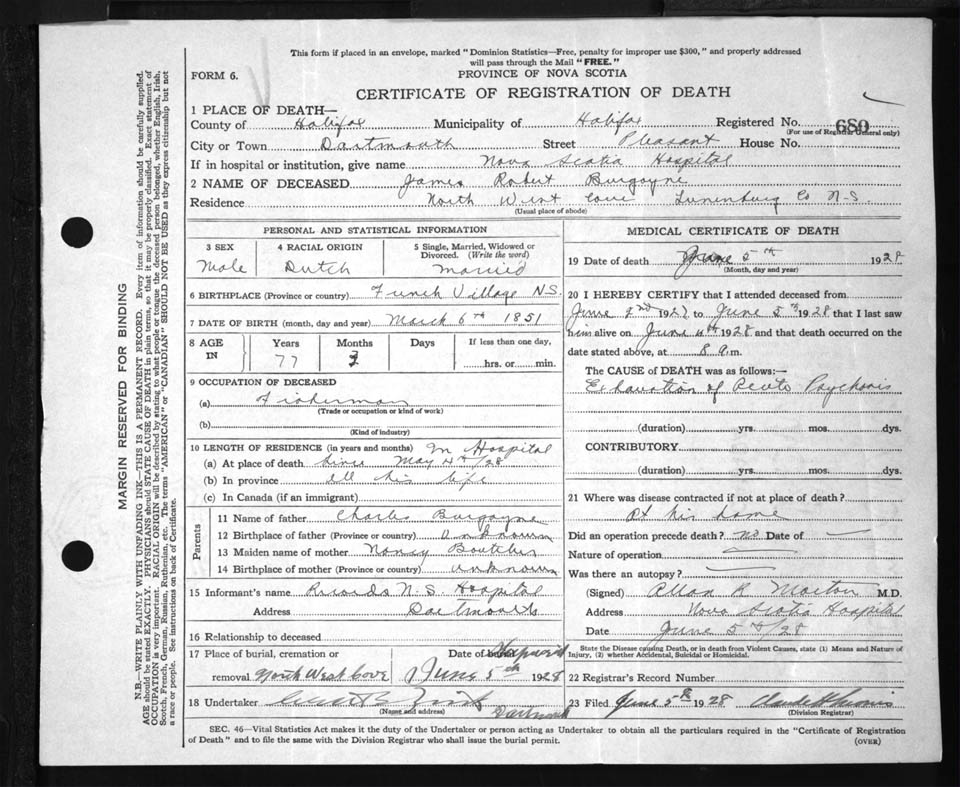 This form if placed in an envelope, marked "Dominion Statistics—Free, penalty for improper use $300," and properly addressed
will pass through the Mail "FREE."
FORM 6.
PROVINCE OF NOVA SCOTIA
CERTIFICATE OF REGISTRATION OF DEATH
1 PLACE OF DEATH—
County of Halifax Municipality of Halifax Registered No. 689
(For use of Registrar General only)
City or Town Dartmouth Street Pleasant House No.
If in hospital or institution, give name Nova Scotia Hospital
2 NAME OF DECEASED James Robert Burgoyne
Residence North West Cove Lunenburg Co N.S.
(Usual place of abode)
PERSONAL AND STATISTICAL INFORMATION
3 SEX
Male
4 RACIAL ORIGIN
Dutch
5 Single, Married, Widowed or
Divorced. (Write the word)
Married
6 BIRTHPLACE (Province or country) French Village N.S.
7 DATE OF BIRTH (month, day and year) March 6th 1851
8 AGE IN
Years
77
Months
3
Days
If less than one day,
hrs. or min.
9 OCCUPATION OF DECEASED
(a) Fisherman
(Trade or occupation or kind of work)
(b)
(Kind of industry)
10 LENGTH OF RESIDENCE (in years and months) In Hospital
(a) At place of death since May 4th/28
(b) In province all his life
(c) In Canada (if an immigrant)
Parents
11 Name of father Charles Burgoyne
12 Birthplace of father (Province or country) Unknown
13 Maiden name of mother Nancy Boutilier
14 Birthplace of mother (Province or country) unknown
15 Informant's name Records N.S. Hospital
Address Dartmouth
16 Relationship to deceased
17 Place of burial, cremation or Date of burial
removal North West Cove June 5th 1928
18 Undertaker
(Name and address)
Dartmouth
MEDICAL CERTIFICATE OF DEATH
19 Date of death June 5th 1928
(Month, day and year)
20 I HEREBY CERTIFY that I attended deceased from
June 2nd 1928 to June 5th 1928 that I last saw
him alive on June 4th 1928 and that death occurred on the
date stated above, at 8 a.m.
The CAUSE OF DEATH was as follows:—
Exhaustion of Acute Psychosis
(duration) yrs. mos. dys.
CONTRIBUTORY.
(duration) yrs. mos. dys.
21 Where was disease contracted if not at place of death?
At his home
Did an operation precede death? no Date of —
Nature of operation —
Was there an autopsy? —
(Signed) Allan R Morton M.D.
Address Nova Scotia Hospital
Date June 5th/28
State the Disease causing Death, or in death from Violent Causes, state (1) Means and Nature of
Injury, (2) whether Accidental, Suicidal or Homicidal.
22 Registrar's Record Number
23 Filed June 5th 1928
(Division Registrar)
SEC. 46—Vital Statistics Act makes it the duty of the Undertaker or person acting as Undertaker to obtain all the particulars required in the "Certificate of Registration
of Death" and to file the same with the Division Registrar who shall issue the burial permit.
(OVER)
MARGIN RESERVED FOR BINDING
N.B.—WRITE PLAINLY WITH UNFADING INK—THIS IS A PERMANENT RECORD. Every item of information should be carefully supplied.
AGE should be stated EXACTLY. PHYSICIANS should STATE CAUSE OF DEATH in plain terms, so that it may be properly classified. Exact statement of
OCCUPATION is very important. RACIAL ORIGIN will be described by stating to what people or tongue the deceased person belonged, whether English, Irish,
Scotch, French, German, Russian, Ruthenian, etc. The terms "AMERICAN" or "CANADIAN" SHOULD NOT BE USED as they express citizenship but not
a race or people. See instructions on back of Certificate.